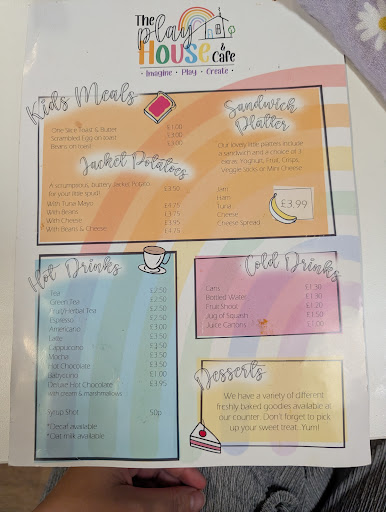 The
play
HOUSE
& Cafe
• Imagine • Play • Create •
Kids Meals
One Slice Toast & Butter £1.00
Scrambled Egg on toast £3.00
Beans on toast £3.00
Jacket Potatoes
A scrumptious, buttery Jacket Potato £3.50
for your little spud!
With Tuna Mayo £4.75
With Beans £3.75
With Cheese £3.95
With Beans & Cheese £4.75
Sandwich
Platter
Our lovely little platters include
a sandwich and a choice of 3
extras: Yoghurt, Fruit, Crisps,
Veggie Sticks or Mini Cheese
Jam
Ham
Tuna
Cheese
Cheese Spread
£3.99
Hot Drinks
Tea £2.50
Green Tea £2.50
Fruit/Herbal Tea £2.50
Espresso £2.50
Americano £3.00
Latte £3.50
Cappuccino £3.50
Mocha £3.50
Hot Chocolate £3.50
Babyccino £1.00
Deluxe Hot Chocolate £3.95
with cream & marshmallows
Syrup Shot 50p
*Decaf available
*Oat milk available
Cold Drinks
Cans
Bottled Water
Fruit Shoot
Jug of Squash
Juice Cartons £1.00
Desserts
We have a variety of different
freshly baked goodies available at
our counter. Don't forget to pick
up your sweet treat. Yum!